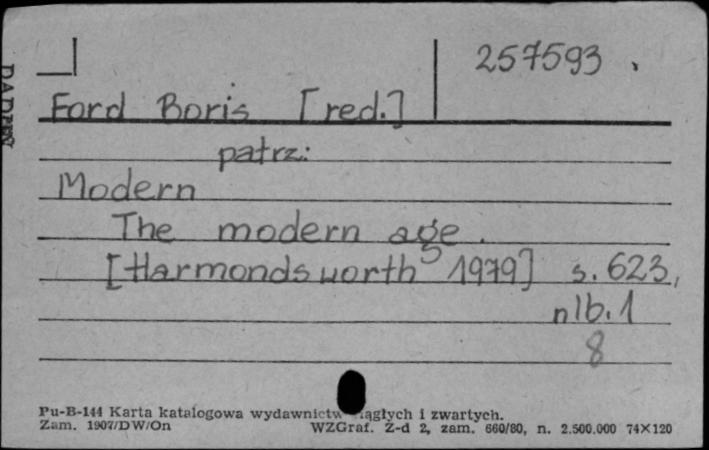 257593
Ford Boris [red.]
patrz:
Modern
The modern age.
[Harmondsworth 1979] s. 623,
nlb. 1
8
Pu-B-144 Karta katalogowa wydawnictw ciągłych i zwartych.
Zam. 1907/DW/On WZGraf. Z-d 2, zam. 660/80, n. 2.500.000 74×120